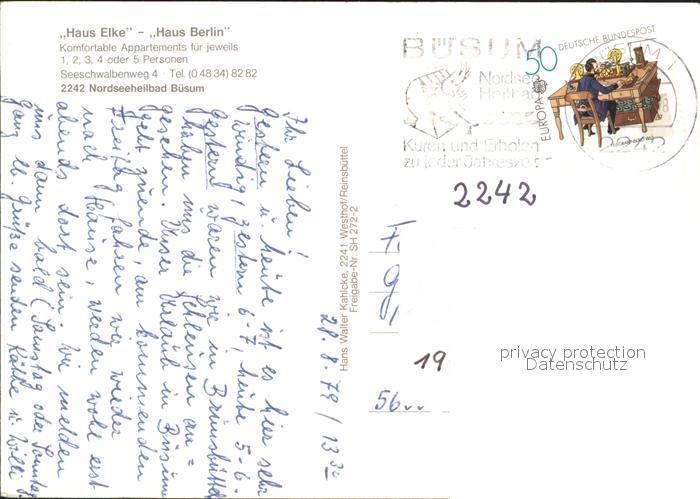 „Haus Elke” - „Haus Berlin”
Komfortable Appartements für jeweils
1, 2, 3, 4 oder 5 Personen
Seeschwalbenweg 4 · Tel. (0 48 34) 82 82
2242 Nordseeheilbad Büsum
BÜSUM
Nordsee
Heilbad
Kuren und Erholen
zu jeder Jahreszeit
50
DEUTSCHE BUNDESPOST
EUROPA
2242
28.8.79 / 13 30
Ihr Lieben!
Gestern u. heute ist es hier sehr
windig, gestern 6-7, heute 5-6.
Gestern waren wir in Brunsbüttel
haben uns die Schleusen an=
gesehen. Unser Urlaub in Büsum
geht zuende, am kommenden
Freitag fahren wir wieder
nach Hause, werden wohl erst
abends dort sein. Wir melden
uns dann bald (Samstag oder Sonntag)
Ganz ll. Grüße senden Käthe u. Willi
Hans Walter Kahlcke, 2241 Westhof/Reinsbüttel
Freigabe-Nr. SH 272-2
2242
19
56..
privacy protection
Datenschutz